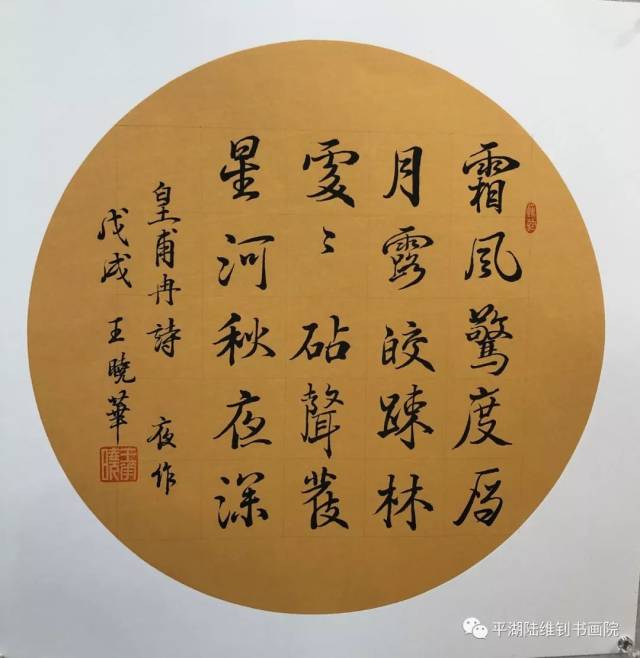 霜風驚度雁
月露皎疎林
處〻砧聲發
星河秋夜深
皇甫冉詩 夜作
戊戌 王曉華
平湖陆维钊书画院